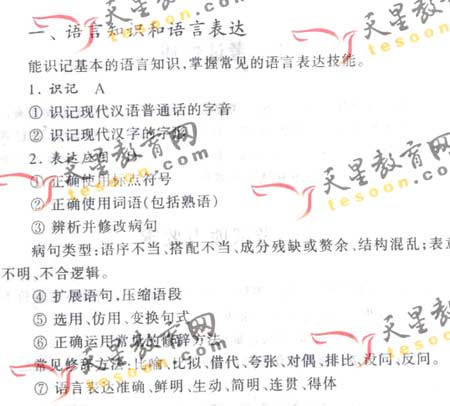 一、语言知识和语言表达
能识记基本的语言知识,掌握常见的语言表达技能。
1. 识记 A
① 识记现代汉语普通话的字音
② 识记现代汉字的字形
2. 表达应用
① 正确使用标点符号
② 正确使用词语(包括熟语)
③ 辨析并修改病句
病句类型:语序不当、搭配不当、成分残缺或赘余、结构混乱;表意
不明、不合逻辑。
④ 扩展语句,压缩语段
⑤ 选用、仿用、变换句式
⑥ 正确运用常见的修辞方法
常见修辞方法:比喻、比拟、借代、夸张、对偶、排比、设问、反问。
⑦ 语言表达准确、鲜明、生动、简明、连贯、得体
天星教育网
tesoon.com
天星教育网
tesoon.com
天星教育网
tesoon.com
天星教育网
tesoon.com
天星教育网
tesoon.com